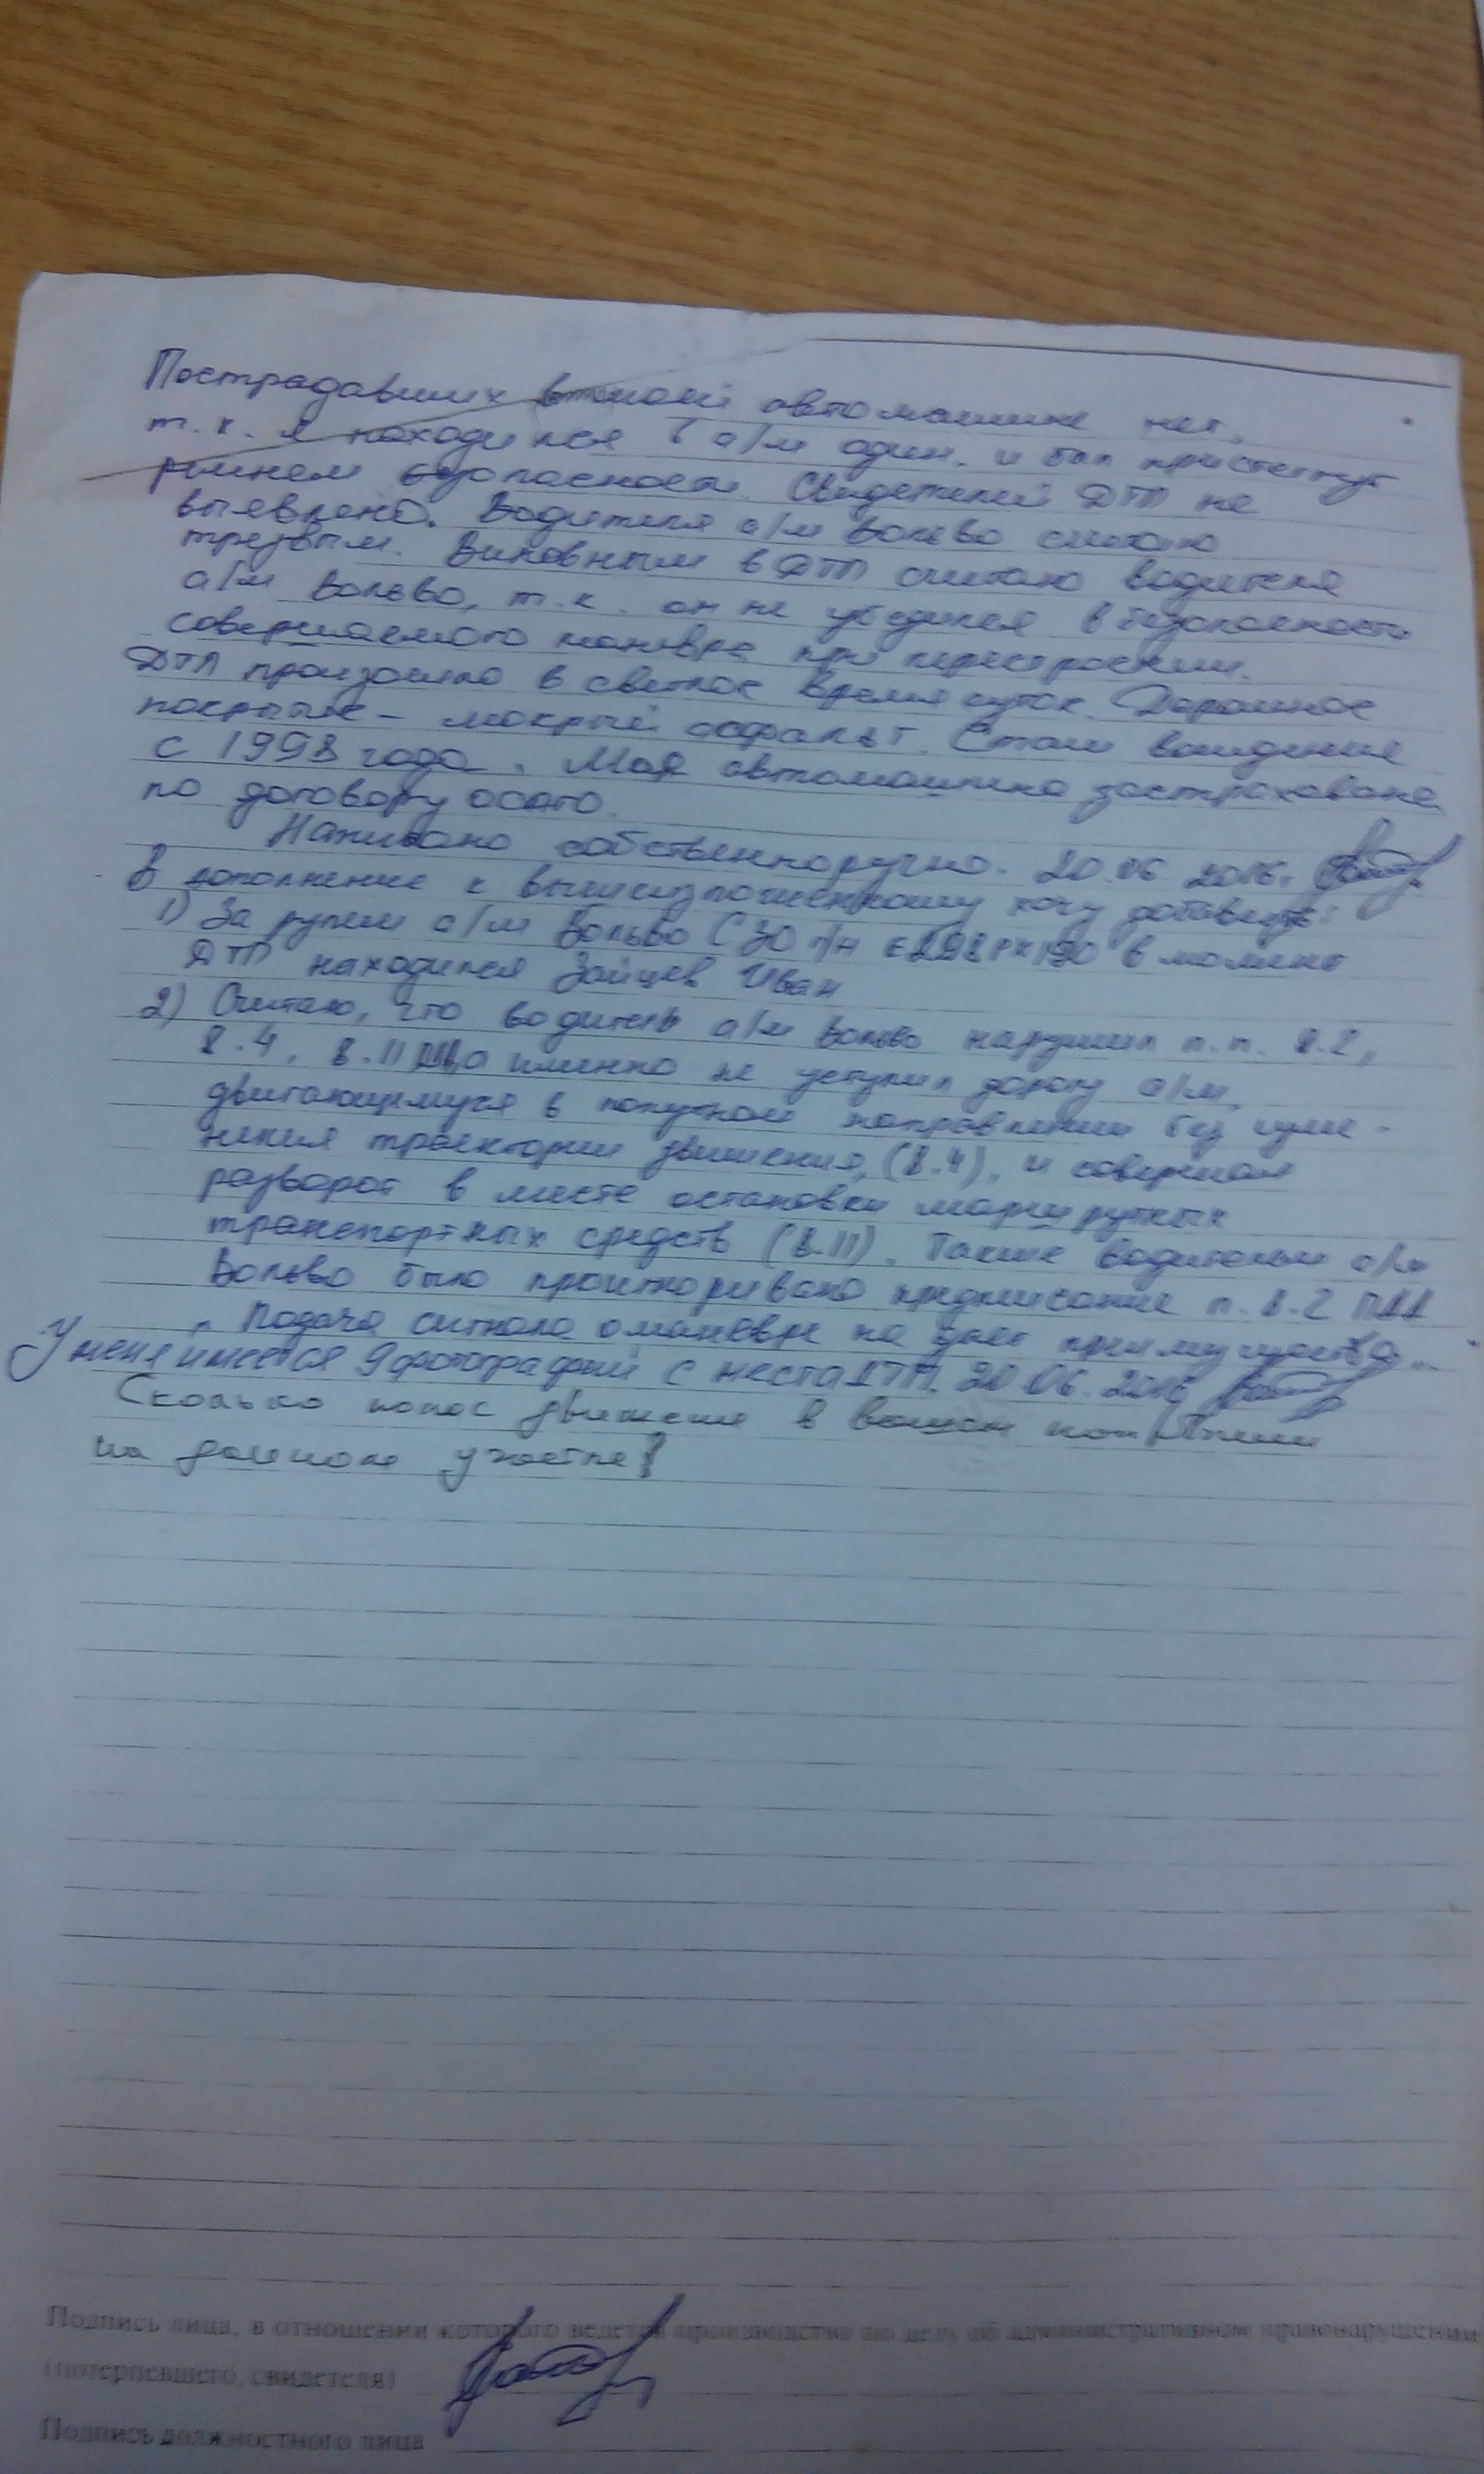 Пострадавших в моей автомашине нет,
т.к. я находился в а/м один. и был пристегнут
ремнем безопасности. Свидетелей ДТП не
выявлено. Водителя а/м Вольво считаю
трезвым. Виновным в ДТП считаю водителя
а/м Вольво, т.к. он не убедился в безопасности
совершаемого маневра при перестроении.
ДТП произошло в светлое время суток. Дорожное
покрытие - мокрый асфальт. Стаж вождения
с 1998 года. Моя автомашина застрахована
по договору осаго.
Написано собственноручно. 20.06 2016.
В дополнение к вышеизложенному хочу добавить:
1) За рулем а/м Вольво С30 г/н в момент
ДТП находился Зайцев Иван
2) Считаю, что водитель а/м Вольво нарушил п.п. 8.2,
8.4, 8.11 а именно не уступил дорогу а/м,
двигающемуся в попутном направлении без изме-
нения траектории движения, (8.4), и совершал
разворот в месте остановки маршрутных
транспортных средств (8.11). Также водителем а/м
Вольво было проигнорировано предписание п. 8.2 ПДД
"Подача сигнала о маневре не дает преимущества..
У меня имеется 9 фотографий с места ДТП. 20 06. 2016
Сколько полос движения в вашем направлении
на данном участке?
Подпись лица, в отношении которого ведется производство по делу об административном правонарушении
(потерпевшего, свидетеля)
Подпись должностного лица